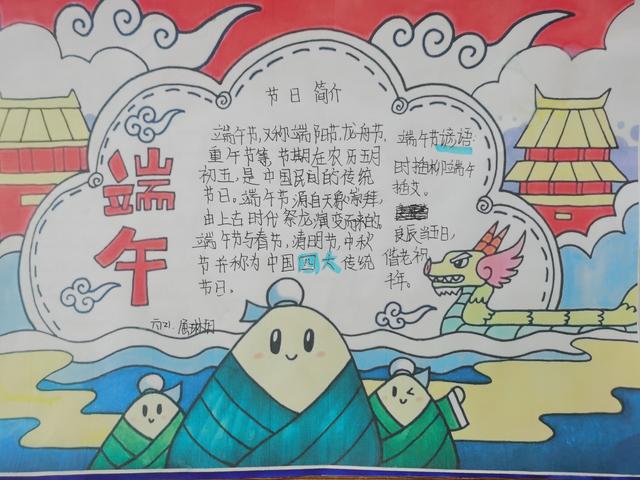 端午
节日简介
端午节,又称端阳节,龙舟节,
重午节等,节期在农历五月
初五,是中国民间的传统
节日。端午节,源自天象崇拜,
由上古时代祭龙演变而来的。
端午节与春节,清明节,中秋
节并称为中国四大传统
节日。
端午节谚语
时插柳端午
插艾。
良辰当五日,
偕老祝
千年。